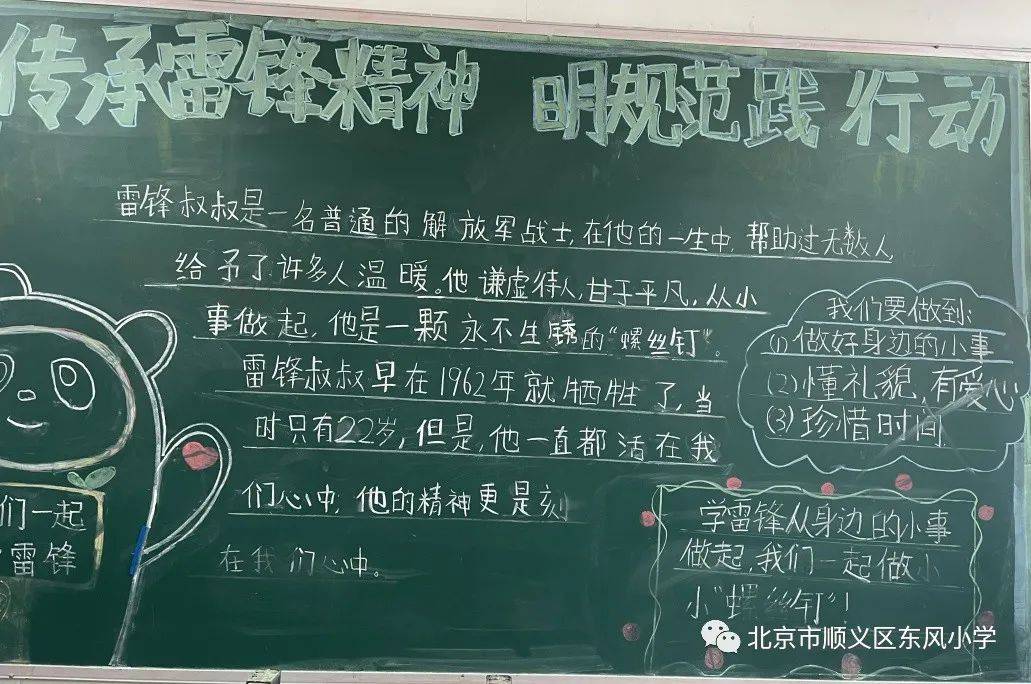 传承雷锋精神 明规范践行动
雷锋叔叔是一名普通的解放军战士,在他的一生中,帮助过无数人
给予了许多人温暖。他谦虚待人,甘于平凡,从小
事做起,他是一颗永不生锈的“螺丝钉”。
雷锋叔叔早在1962年就牺牲了,当
时只有22岁,但是,他一直都活在我
们心中,他的精神更是刻
在我们心中。
我们要做到:
(1)做好身边的小事
(2)懂礼貌,有爱心
(3)珍惜时间
们一起
雷锋
学雷锋从身边的小事
做起,我们一起做小
小“螺丝钉”!
北京市顺义区东风小学